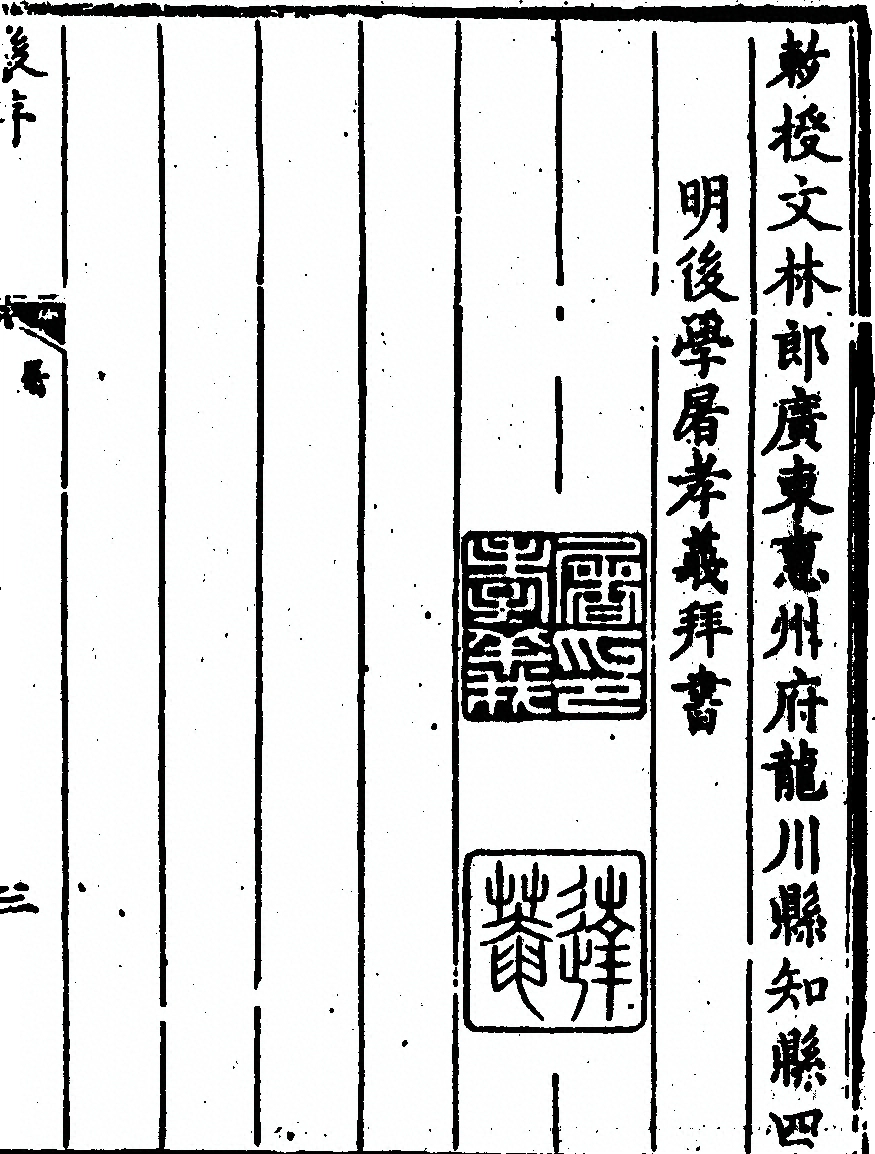 敕授文林郎廣東惠州府龍川縣知縣四
明後學屠孝義拜書
屠印
孝義
後序
三